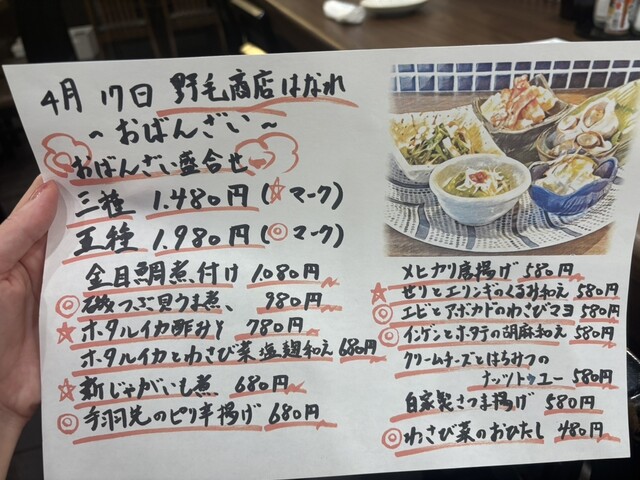 4月17日 野毛商店はなれ
~おばんざい~
おばんざい盛合せ
三種 1.480円(☆マーク)
五種 1.980円(◎マーク)
金目鯛煮付け 1.080円
◎磯つぶ貝うま煮、980円
☆ホタルイカ酢みそ 780円
ホタルイカとわさび菜塩麹和え 680円
☆新じゃがいも煮 680円
◎手羽先のピリ辛揚げ 680円
メヒカリ唐揚げ 580円
☆せりとエリンギのくるみ和え 580円
◎エビとアボカドのわさびマヨ 580円
◎インゲンとホタテの胡麻和え 580円
クリームチーズとはちみつの
ナッツトゥユー 580円
自家製さつま揚げ 580円
◎わさび菜のおひたし 480円